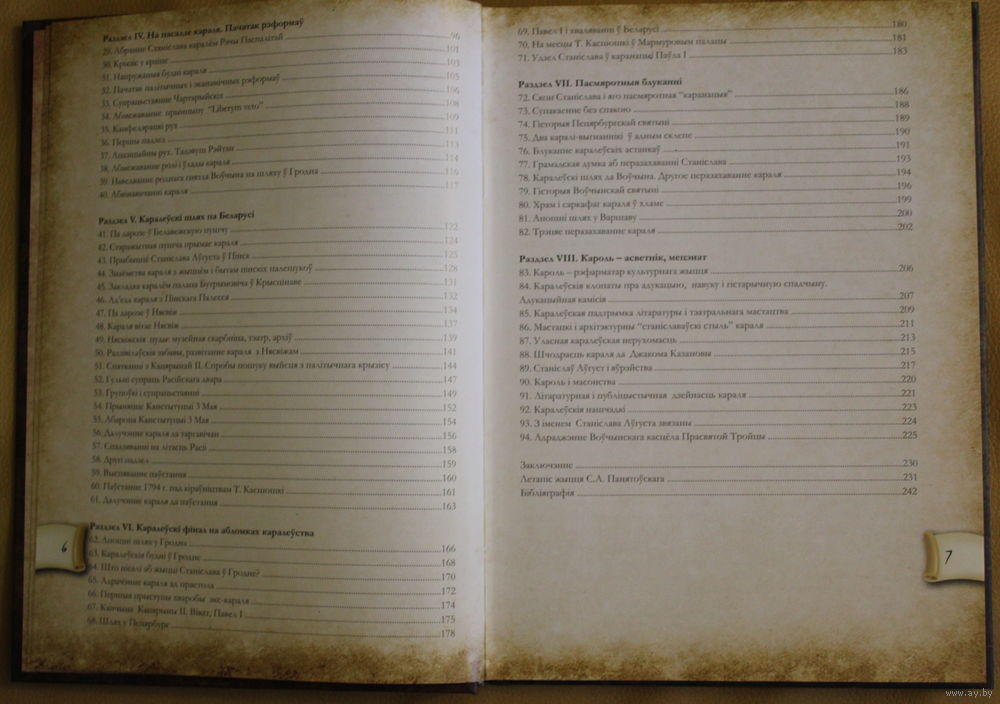 Раздзел IV. На пасадзе караля. Пачатак рэформаў
29. Абранне Станіслава каралём Рэчы Паспалітай 96
30. Крызіс у краіне 101
31. Напружаныя будні караля 103
32. Пачатак палітычных і эканамічных рэформаў 105
33. Супрацьстаянне Чартарыйскіх 106
34. Абмежаванне прынцыпу "Liberum veto" 108
35. Канфедэрацкі рух 109
36. Першы падзел 111
37. Апазіцыйны рух. Тадэвуш Рэйтан 113
38. Абмежаванне ролі і ўлады караля 114
39. Наведванне роднага гнязда Воўчына на шляху ў Гродна 116
40. Абвінавачанні караля 117
Раздзел V. Каралеўскі шлях па Беларусі
41. Па дарозе ў Белавежскую пушчу 122
42. Старажытная пушча прымае караля 124
43. Прыбыццё Станіслава Аўгуста ў Пінск 125
44. Знаёмства караля з жыццём і бытам пінскіх палешукоў 128
45. Закладка каралём палаца Бутрымовіча ў Крысцінаве 131
46. Ад'езд караля з Пінскага Палесся 132
47. Па дарозе ў Нясвіж 134
48. Караля вітае Нясвіж 137
49. Нясвіжскія цуды: музейная скарбніца, тэатр, архіў 139
50. Радзівілаўскія забавы, развітанне караля з Нясвіжам 141
51. Спатканні з Кацярынай II. Спробы пошуку выйсця з палітычнага крызісу 144
52. Гульні супраць Расійскага двара 147
53. Групоўкі і супрацьстаянні 149
54. Прыняцце Канстытуцыі 3 Мая 152
55. Абарона Канстытуцыі 3 Мая 154
56. Далучэнне караля да таргавічан 156
57. Спадзяванні на літасць Расіі 158
58. Другі падзел 159
59. Выспяванне паўстання 160
60. Паўстанне 1794 г. пад кіраўніцтвам Т. Касцюшкі 161
61. Далучэнне караля да паўстання 163
Раздзел VI. Каралеўскі фінал на абломках каралеўства
62. Апошні шлях у Гродна 166
63. Каралеўскія будні ў Гродне 168
64. Што пісалі аб жыцці Станіслава ў Гродне? 170
65. Адрачэнне караля ад прастола 172
66. Першыя прыступы хваробы экс-караля 174
67. Кончына Кацярыны II. Візіт, Павел I 175
68. Шлях у Пецярбург 178
6
69. Павел I і хваляванні ў Беларусі 180
70. На месцы Т. Касцюшкі ў Мармуровым палацы 181
71. Удзел Станіслава ў каранацыі Паўла I 183
Раздзел VII. Пасмяротныя блуканні
72. Скон Станіслава і яго пасмяротная "каранацыя" 186
73. Супакаенне без спакою 188
74. Гісторыя Пецярбургскай святыні 189
75. Два каралі-выгнаннікі ў адным склепе 190
76. Блуканне каралеўскіх астанкаў 191
77. Грамадская думка аб перазахаванні Станіслава 193
78. Каралеўскі шлях да Воўчына. Другое перазахаванне караля 194
79. Гісторыя Воўчынскай святыні 196
80. Храм і саркафаг караля ў хламе 199
81. Апошні шлях у Варшаву 200
82. Трэцяе перазахаванне караля 202
Раздзел VIII. Кароль – асветнік, мецэнат
83. Кароль – рэфарматар культурнага жыцця 206
84. Каралеўскія клопаты пра адукацыю, навуку і гістарычную спадчыну.
Адукацыйная камісія 207
85. Каралеўская падтрымка літаратуры і тэатральнага мастацтва 209
86. Мастацкі і архітэктурны "станіславаўскі стыль" караля 211
87. Уласная каралеўская нерухомасць 213
88. Шчодрасць караля да Джакома Казановы 215
89. Станіслаў Аўгуст і яўрэйства 217
90. Кароль і масонства 220
91. Літаратурная і публіцыстычная дзейнасць караля 221
92. Каралеўскія нашчадкі 223
93. З іменем Станіслава Аўгуста звязаны 224
94. Адраджэнне Воўчынскага касцёла Прасвятой Тройцы 225
Заключэнне 230
Летапіс жыцця С.А. Панятоўскага 231
Бібліяграфія 242
7
www.ay.by